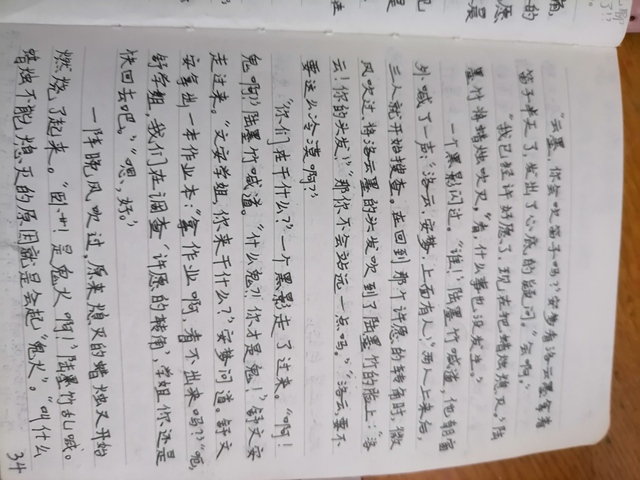 “云墨，你会吹笛子吗？”安梦看洛云墨拿着
笛子半天了，发出了心底的疑问。“会啊。”
“我已经许好愿了，现在把蜡烛熄灭。”陆
墨竹将蜡烛吹灭。“看，什么事也没发生。”
一个黑影闪过。“谁！”陆墨竹喊道，他朝窗
外喊了一声：“洛云，安梦，上面有人！”两人上来后，
三人就开始搜查。在回到那个许愿的转角时，微
风吹过，将洛云墨的头发吹到了陆墨竹的脸上：“洛
云！你的头发！”“那你不会站远一点吗。”“洛云要不
要这么冷漠啊？”
“你们在干什么？”一个黑影走了过来。“啊！
鬼啊！”陆墨竹喊道。“什么鬼？！你才是鬼！”舒文安
走过来。“文安学姐，你来干什么？”安梦问道。舒文
安拿出一本作业本：“拿作业啊，看不出来吗？”“呃，
舒学姐，我们在调查‘许愿的转角’，学姐你还是
快回去吧。”“嗯，好。”
一阵晚风吹过，原来熄灭的蜡烛又开始
燃烧了起来。“卧艹！是鬼火啊！”陆墨竹乱喊。
蜡烛不能熄灭的原因就是会起“鬼火”。“叫什么
34